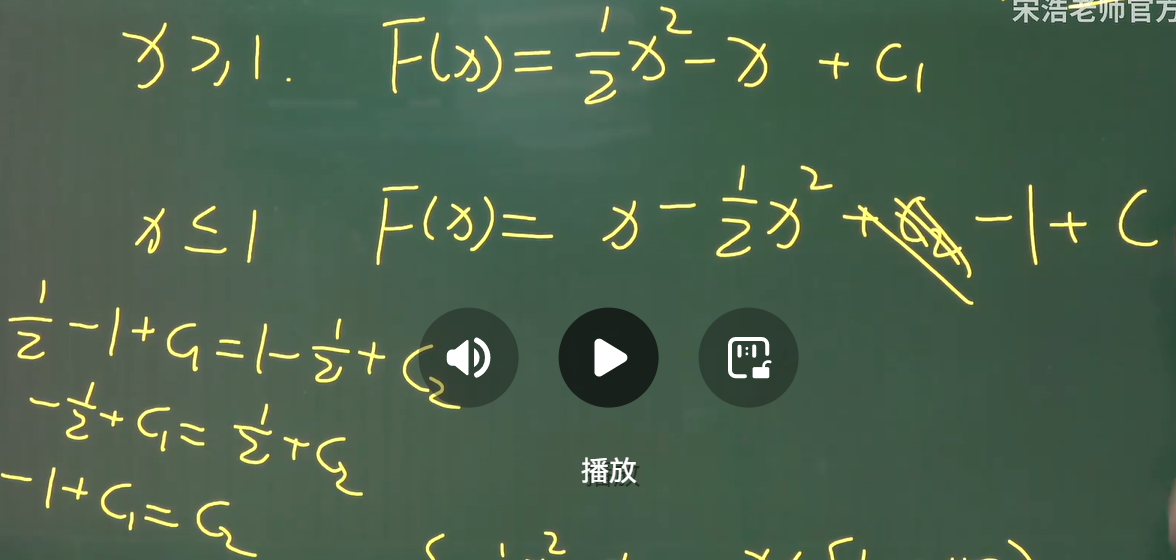 宋浩老师官方
x ≥ 1. F(x) = 1/2 x² - x + C₁
x ≤ 1 F(x) = x - 1/2 x² + -1 + C
1/2 - 1 + C₁ = 1 - 1/2 + C₂
-1/2 + C₁ = 1/2 + C₂
播放
-1 + C₁ = C₂